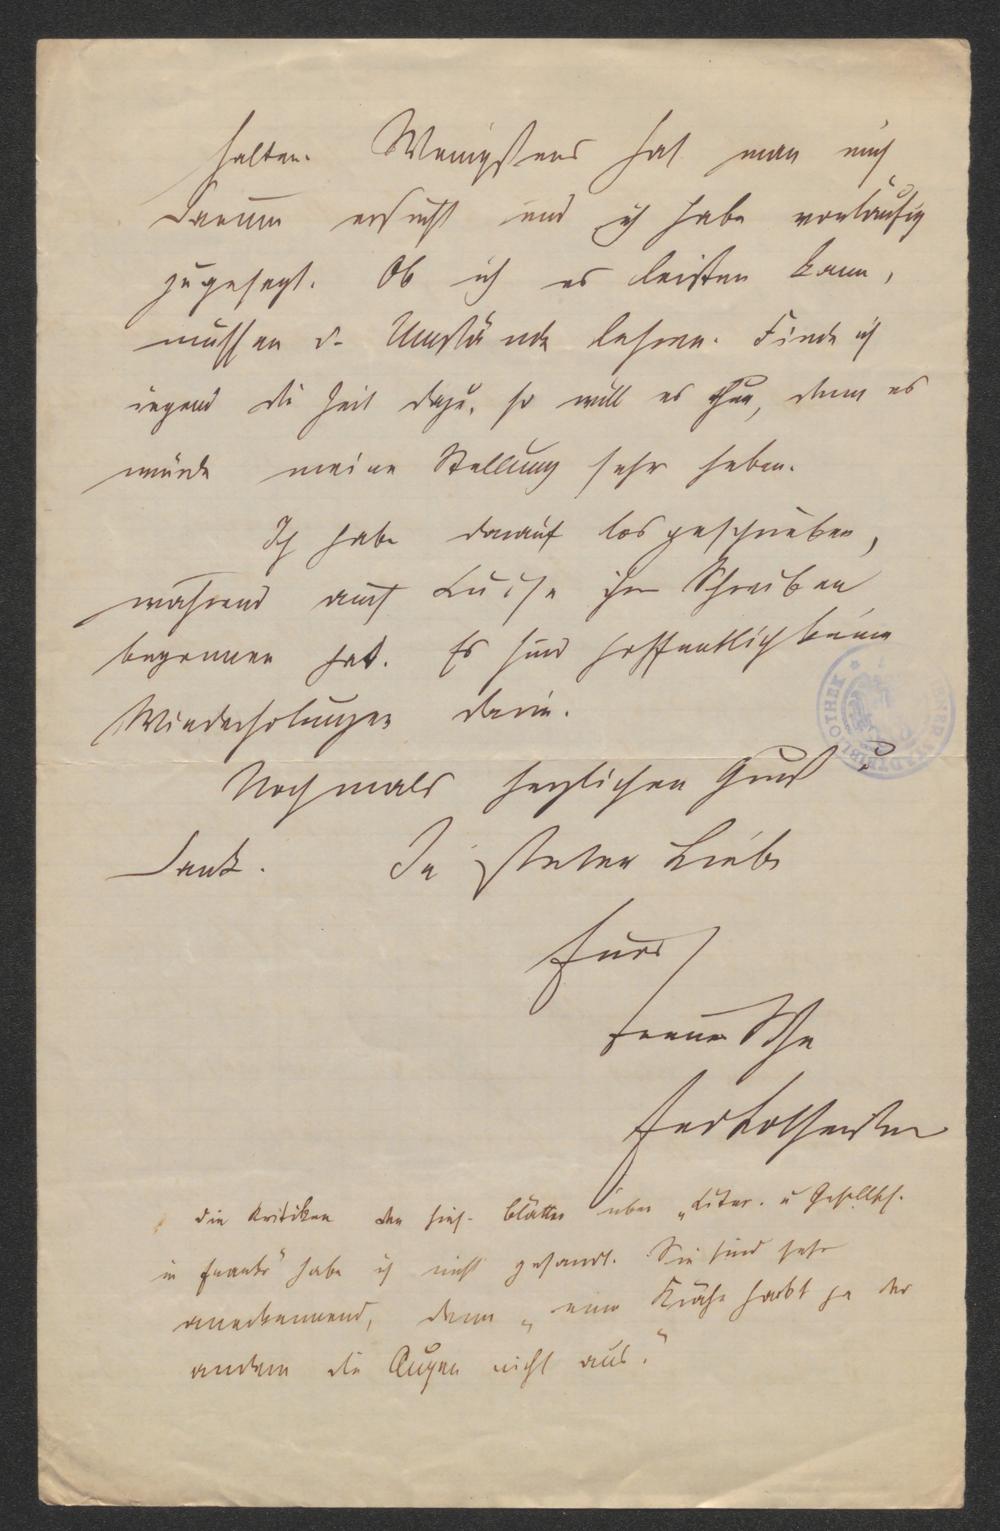 halten. Wenigstens hat man mich
darum ersucht und ich habe vorläufig
zugesagt. Ob ich es leisten kann,
müssen d. Umstände lehren. Finde ich
irgend die Zeit dazu, so will es thun, denn es
würde meine Stellung sehr heben.
Ich habe darauf los geschrieben,
während auch Luise ihr Schreiben
begonnen hat. Es sind hoffentlich keine
Wiederholungen darin.
Nochmals herzlichen Gruß u
Dank. In steter Liebe
Euer
treuer
Ferd Lotheissen
Die Kritiken der hies. Blätter über „Liter. u Gesellsch.
in Frankr" habe ich nicht gesandt. Sie sind sehr
anerkennend, denn „eine Krähe hackt ja der
andern die Augen nicht aus."